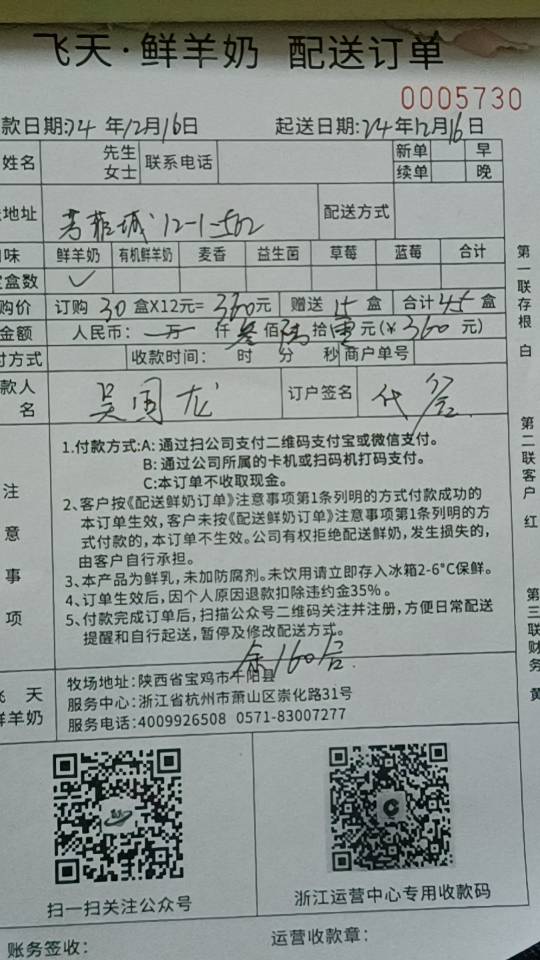 飞天·鲜羊奶 配送订单
0005730
款日期:24年12月16日 起送日期:24年12月16日
姓名 先生 女士 联系电话 新单 早
续单 晚
地址 芳菲城12-1-502 配送方式
味 鲜羊奶 有机鲜羊奶 麦香 益生菌 草莓 蓝莓 合计
盒数 ✓
购价 订购 30 盒X12元= 360元 赠送 15 盒 合计 45 盒
金额 人民币: 万 仟 叁 佰 陆 拾 零 元(¥ 360 元)
付方式 收款时间: 时 分 秒 商户单号
款人名 吴国龙 订户签名 代签
注意事项
1.付款方式:A: 通过扫公司支付二维码支付宝或微信支付。
B: 通过公司所属的卡机或扫码机打码支付。
C:本订单不收取现金。
2、客户按《配送鲜奶订单》注意事项第1条列明的方式付款成功的
本订单生效,客户未按《配送鲜奶订单》注意事项第1条列明的方
式付款的,本订单不生效。公司有权拒绝配送鲜奶,发生损失的,
由客户自行承担。
3、本产品为鲜乳,未加防腐剂。未饮用请立即存入冰箱2-6°C保鲜。
4、订单生效后,因个人原因退款扣除违约金35%。
5、付款完成订单后,扫描公众号二维码关注并注册,方便日常配送
提醒和自行起送,暂停及修改配送方式。
余160合
飞天
鲜羊奶
牧场地址:陕西省宝鸡市千阳县
服务中心:浙江省杭州市萧山区崇化路31号
服务电话:4009926508 0571-83007277
扫一扫关注公众号
浙江运营中心专用收款码
账务签收: 运营收款章:
第一联存根 白
第二联客户 红
第三联财务 黄